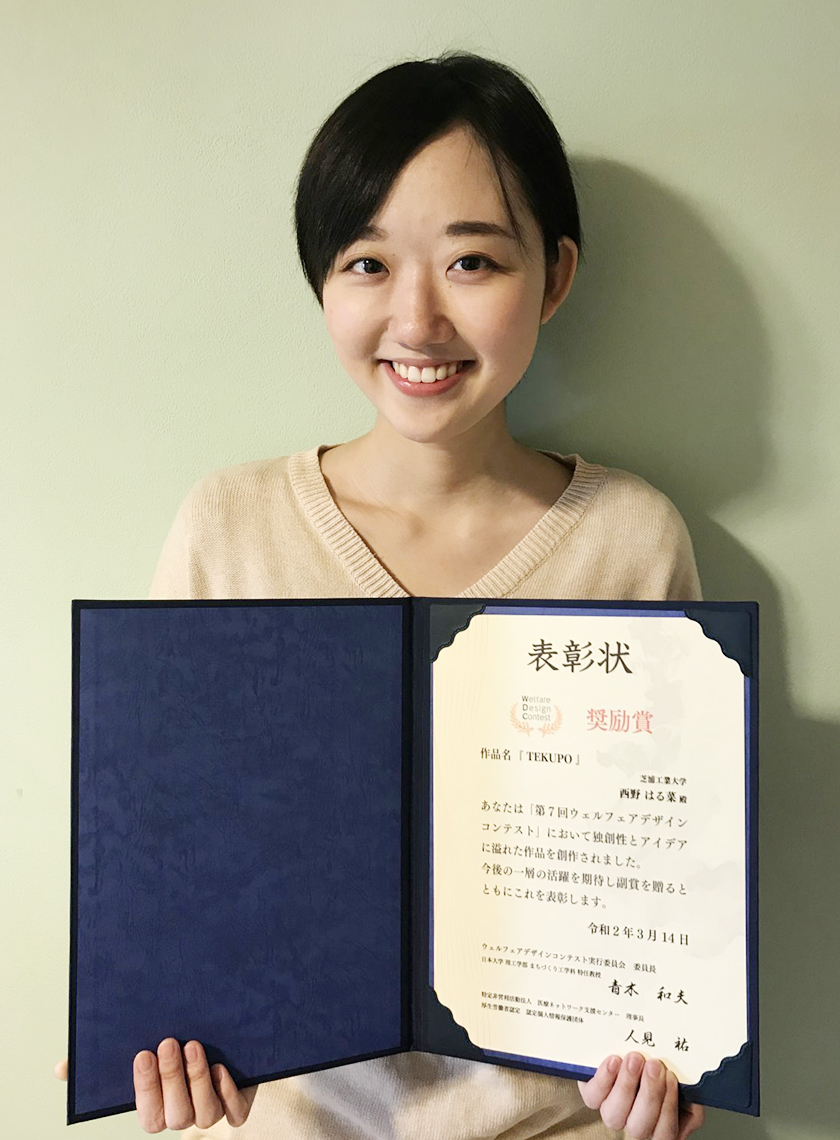 表彰状
Welfare
Design
Contest
奨励賞
作品名『 TEKUPO 』
芝浦工業大学
西野 はる菜 殿
あなたは「第7回ウェルフェアデザイン
コンテスト」において独創性とアイデア
に溢れた作品を創作されました。
今後の一層の活躍を期待し副賞を贈ると
ともにこれを表彰します。
令和2年3月14日
ウェルフェアデザインコンテスト実行委員会 委員長
日本大学 理工学部 まちづくり工学科 特任教授
青木 和夫
特定非営利活動法人 医療ネットワーク支援センター 理事長
厚生労働省認定 認定個人情報保護団体
人見 祐